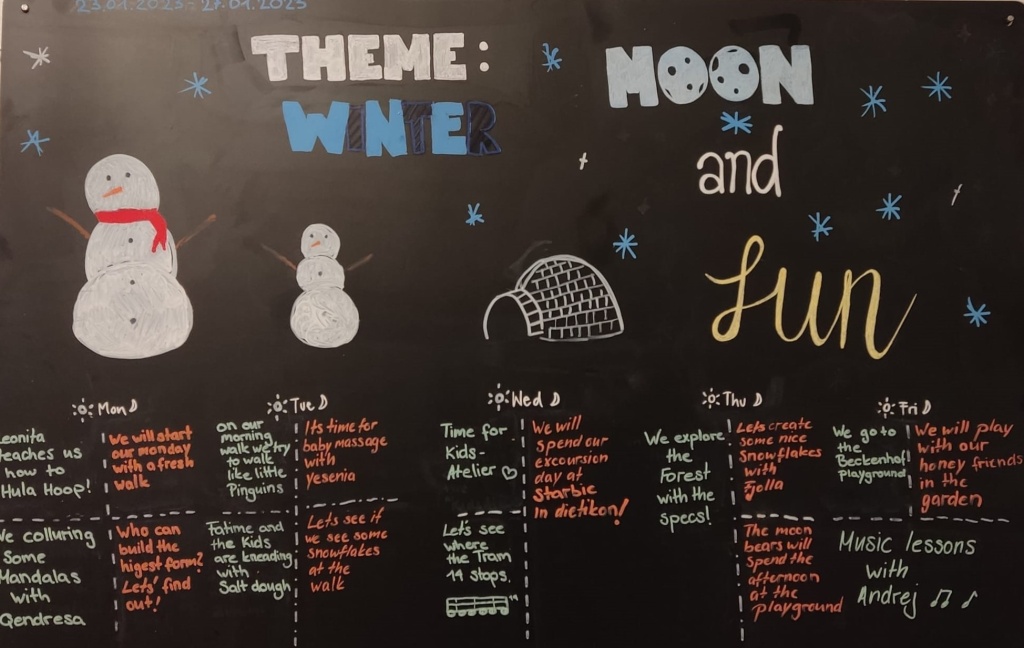 23.01.2023 - 27.01.2023
THEME:
WINTER
MOON
and
Sun
Mon
eonita
teaches us
how to
Hula Hoop!
We will start
our monday
with a fresh
walk
e colluring
Some
Mandalas
with
Qendresa
Who can
build the
higest form?
Lets' find
out!
Tue
on our
morning
walk we try
to walk
like little
Pinguins
Its time for
baby massage
with
yesenia
Fatime and
the Kids
are kneading
with
Salt dough
Let's see if
we see some
snowflakes
at the
walk
Wed
Time for
Kids-
Atelier
We will
spend our
excoursion
day at
Starbie
in dietikon!
Let's see
where
the Tram
14 stops.
Thu
We explore
the
Forest
with the
specs!
Lets create
some nice
Snowflakes
with
Fjolla
The moon
bears will
spend the
afternoon
at the
playground
Fri
We go to
the
Beckenhof
playground
We will play
with our
honey friends
in the
garden
Music lessons
with
Andrej